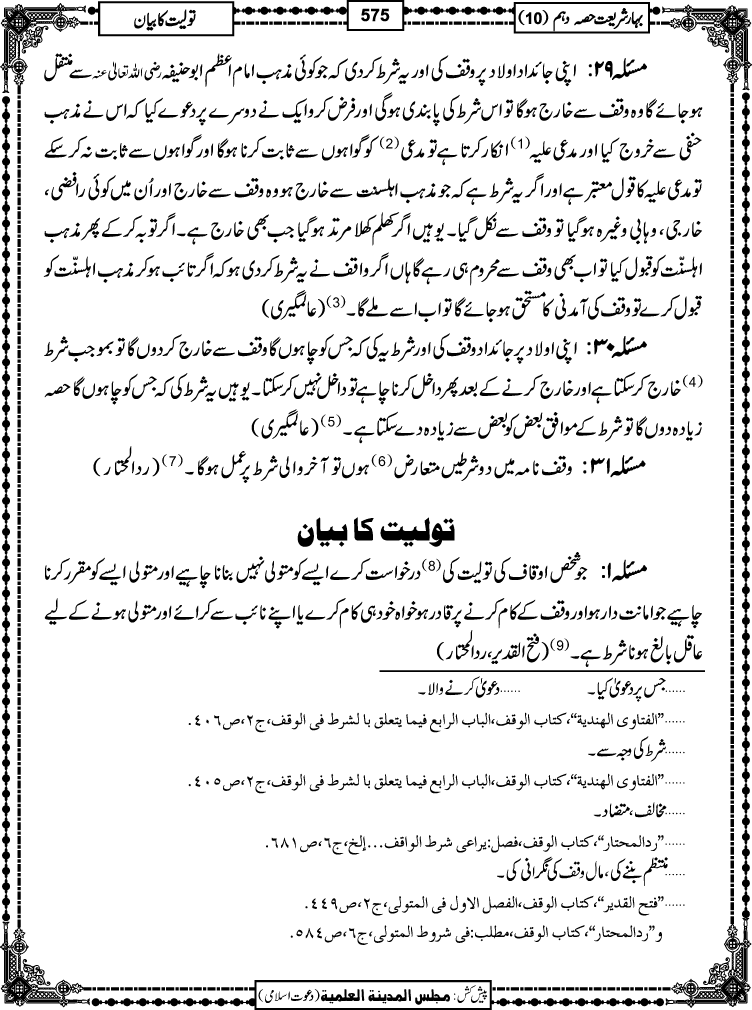 بہار شریعت حصہ دہم (10)
575
تولیت کا بیان
مسئلہ ۲۹: اپنی جائداد اولاد پر وقف کی اور یہ شرط کردی کہ جو کوئی مذہب امام اعظم ابوحنیفہ رضی اللہ تعالیٰ عنہ سے منتقل
ہو جائے گا وہ وقف سے خارج ہوگا تو اس شرط کی پابندی ہوگی اور فرض کرو ایک نے دوسرے پر دعوے کیا کہ اس نے مذہب
حنفی سے خروج کیا اور مدعی علیہ(1) انکار کرتا ہے تو مدعی(2) کو گواہوں سے ثابت کرنا ہوگا اور گواہوں سے ثابت نہ کرسکے
تو مدعی علیہ کا قول معتبر ہے اور اگر یہ شرط ہے کہ جو مذہب اہلسنت سے خارج ہو وہ وقف سے خارج اور اُن میں کوئی رافضی،
خارجی، وہابی وغیرہ ہوگیا تو وقف سے نکل گیا۔ یوہیں اگر کھلم کھلا مرتد ہوگیا جب بھی خارج ہے۔ اگر توبہ کرکے پھر مذہب
اہلسنّت کو قبول کیا تو اب بھی وقف سے محروم ہی رہے گا ہاں اگر واقف نے یہ شرط کردی ہو کہ اگر تائب ہو کر مذہب اہلسنّت کو
قبول کرے تو وقف کی آمدنی کا مستحق ہو جائے گا تو اب اسے ملے گا۔(3) (عالمگیری)
مسئلہ ۳۰: اپنی اولاد پر جائداد وقف کی اور شرط یہ کی کہ جس کو چاہوں گا وقف سے خارج کردوں گا تو بموجب شرط
(4) خارج کرسکتا ہے اور خارج کرنے کے بعد پھر داخل کرنا چاہے تو داخل نہیں کرسکتا۔ یوہیں یہ شرط کی کہ جس کو چاہوں گا حصہ
زیادہ دوں گا تو شرط کے موافق بعض کو بعض سے زیادہ دے سکتا ہے۔(5) (عالمگیری)
مسئلہ ۳۱: وقف نامہ میں دو شرطیں متعارض(6) ہوں تو آخر والی شرط پر عمل ہوگا۔(7) (ردالمحتار)
تولیت کا بیان
مسئلہ ۱: جو شخص اوقاف کی تولیت کی(8) درخواست کرے ایسے کو متولی نہیں بنانا چاہیے اور متولی ایسے کو مقرر کرنا
چاہیے جو امانت دار ہو اور وقف کے کام کرنے پر قادر ہو خواہ خود ہی کام کرے یا اپنے نائب سے کرائے اور متولی ہونے کے لیے
عاقل بالغ ہونا شرط ہے۔(9) (فتح القدیر، ردالمحتار)
......جس پر دعویٰ کیا۔ ......دعویٰ کرنے والا۔
......”الفتاوی الھندیة“،کتاب الوقف،الباب الرابع فیما یتعلق با لشرط فی الوقف،ج۲،ص۴۰۶.
......شرط کی وجہ سے۔
......”الفتاوی الھندیة“،کتاب الوقف،الباب الرابع فیما یتعلق با لشرط فی الوقف،ج۲،ص۴۰۵.
......مخالف، متضاد۔
......”ردالمحتار“،کتاب الوقف،فصل:یراعی شرط الواقف...إلخ،ج۶،ص۶۸۱.
......منتظم بننے کی، مال وقف کی نگرانی کی۔
......”فتح القدیر“،کتاب الوقف،الفصل الاول فی المتولی،ج۲،ص۴۴۹.
و”ردالمحتار“،کتاب الوقف،مطلب:فی شروط المتولی،ج۶،ص۵۸۴.
پیش کش: مجلس المدینة العلمیة (دعوت اسلامی)